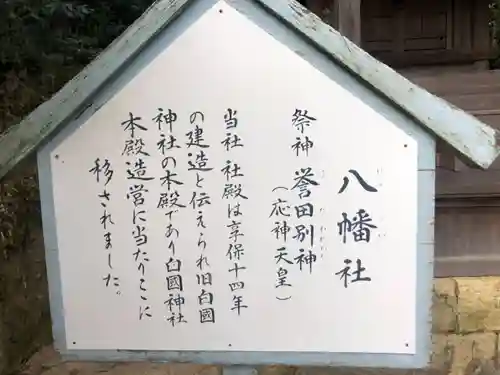 八幡社
祭神 誉田別神
(応神天皇)
当社 社殿は享保十四年
の建造と伝えられ旧白國
神社の本殿であり白國神社
本殿造営に当たりここに
移されました。